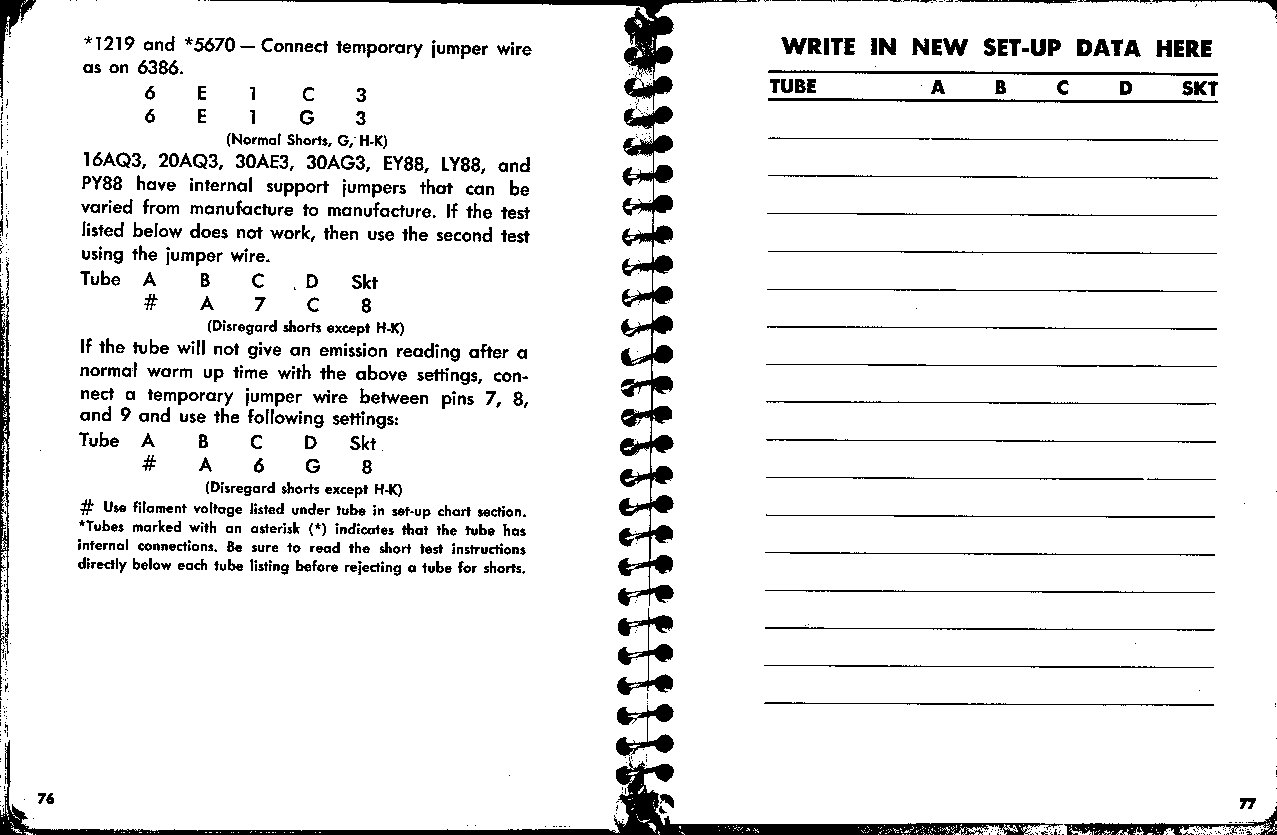 *1219 and *5670 — Connect temporary jumper wire
as on 6386.
6 E 1 C 3
6 E 1 G 3
(Normal Shorts, G, H-K)
16AQ3, 20AQ3, 30AE3, 30AG3, EY88, LY88, and
PY88 have internal support jumpers that can be
varied from manufacture to manufacture. If the test
listed below does not work, then use the second test
using the jumper wire.
Tube A B C D Skt
# A 7 C 8
(Disregard shorts except H-K)
If the tube will not give an emission reading after a
normal warm up time with the above settings, con-
nect a temporary jumper wire between pins 7, 8,
and 9 and use the following settings:
Tube A B C D Skt
# A 6 G 8
(Disregard shorts except H-K)
# Use filament voltage listed under tube in set-up chart section.
*Tubes marked with an asterisk (*) indicates that the tube has
internal connections. Be sure to read the short test instructions
directly below each tube listing before rejecting a tube for shorts.
76
WRITE IN NEW SET-UP DATA HERE
TUBE A B C D SKT
77